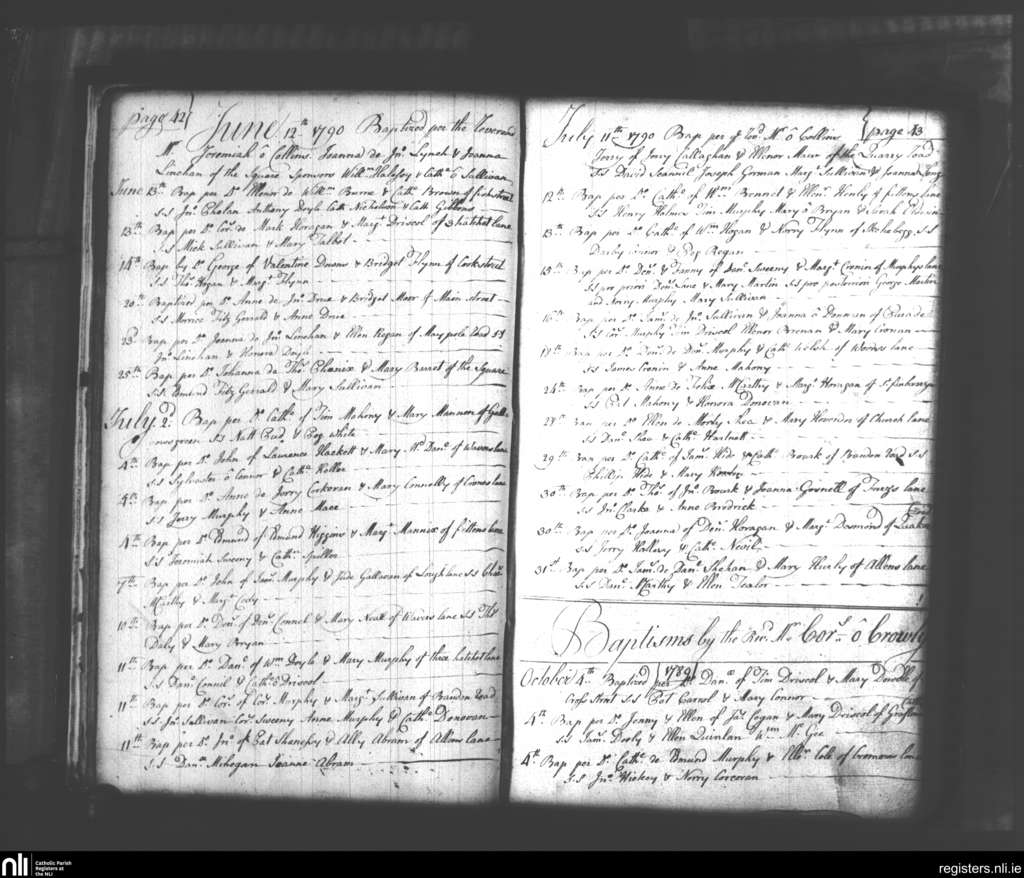 page 42
June 12th 1790 Baptized per the Reverend
Mr Jeremiah ô Collins Joanna de Jno Lynch & Joanna
Linehan of the Square Sponsors Willm & Cathe ô Sullivan
June 13th Bap per Do Elenor de Willm Burne & Cathe Brown of
S.s Jno Phelan Anthony Doyle Cath Nicholson & Cath
13th Bap per Do Cors de Mark Horagan & Margt Driscol of 3 hatchet lane
S.s Mick Sullivan & Mary Talbot
14th Bap by Do George of Valentine & Bridget Flynn of Cork street
S.s Thos Hogan & Margt Flynn
20th Baptized per Do Anne de Jno Drue & Bridget Moor of Main street
S.s Morrice Fitz Gerrald & Anne Drue
23d Bap per Do Joanna de Jno Linehan & Ellen Regan of May pole Road S.s
Jno Linehan & Honora Doyle
25th Bap per Do Johanna de Thos Phenix & Mary Burret of the Square
S.s Edmund Fitz Gerrald & Mary Sullivan
July 2d Bap per Do Cathe of Tim Mahony & Mary Mannon of Gall-
owsgreen S.s Natt & Peg White
4th Bap per Do John of Laurence Hackett & Mary Mc Dane of Weavers lane
S.s Sylvester ô Connor & Cathe Keller
4th Bap per Do Anne de Jerry Corkoran & Mary Connolly of Coones lane
S.s Jerry Murphy & Anne Mace
4th Bap per Do Edmund of Edmund Higgins & Margt Mannix of fillems lane
S.s Jeremiah Sweeny & Cathe Spiller
7th Bap per Do John of Jams Murphy & Jude Gallavan of Lough lane S.s Chas
McCarthy & Margt Cody
10th Bap per Do Denis of Denis Connel & Mary Neall of Weavers lane S.s Thos
Daly & Mary Bryan
11th Bap per Do Danl of Wm Doyle & Mary Murphy of three hatchet lane
S.s Danl Connil & Cathe ô Driscol
11th Bap per Do Cors of Cors Murphy & Margt Sullivan of Bandon Road
S.s Jno Sullivan Cors Sweeny Anne Murphy & Cathe Donovan
11th Bap per Do Jno of Pat Shanehy & Ally Abram of Allens lane
S.s Danl Mehegan Joanne Abram
page 43
July 11th 1790 Bap per ye Revd Mr ô Collins
Jerry of Jerry Callaghan & Elenor Marr of the Quarry Road
S.s David Scannil Joseph Gorman Mary Sullivan & Joanna
12th Bap per Do Cathe of Wm Bennet & Elenr Henly of fillems lane
S.s Henry Holmes Tim Murphy Mary ô Bryan & Sarah
13th Bap per Do Cathe of Wm Hogan & Norry Flynn of S.s
Darby Connor & Peg Regan
15th Bap per Do Denis & Fanny of Danl Sweeny & Margt Cronin of Murphys lane
S.s per priori Denis & Mary Martin S.s per posteriori George
and Anny Murphy Mary Sullivan
16th Bap per Do Jams de Jno Sullivan & Joanna ô Dennan of
S.s Cors Murphy Tim Driscol Elenor Brenan & Mary Cornan
18th Bap per Do Denis de Denis Murphy & Cathe Welsh of Weavers lane
S.s James Cronin & Anne Mahony
24th Bap per Do Anne de Felix McCarthy & Margt Horagan of
S.s Pat Mahony & Honora Donovan
28th Bap per Do Ellen de Morty Shea & Mary of Church lane
S.s Danl Shea & Cathe Hartnett
29th Bap per Do Cathe of Jams Hide & Cathe Bourk of Bandon Road S.s
Phillip Hide & Mary
30th Bap per Do Thos of Jno Bourk & Joanna Gosnell of lane
S.s Jno Clarke & Anne Brodrick
30th Bap per Do Joanna of Denis Horagan & Margt Desmond of
S.s Jerry Hallory & Cathe Nevil
31st Bap per Do Jams de Danl Shehan & Mary Hurly of Allens lane
S.s Danl McCarthy & Ellen Tealor
Baptisms by the Revd Mr Cors ô Crowly
October 4th Baptized 1789 per Do Danl of Tim Driscol & Mary Dowdle of
Cross Street S.s Pat Carnel & Mary Connor
4th Bap per Do Jenny & Ellen of Jas Cogan & Mary Driscol of
S.s Jams Dooly & Ellen Quinlan Wm Mc Gee
4th Bap per Do Cathe de Edmund Murphy & Ellen Cole of lane
S.s Jno Hickey & Norry Corcoran
nli
Catholic Parish
Registers at
the NLI
registers.nli.ie